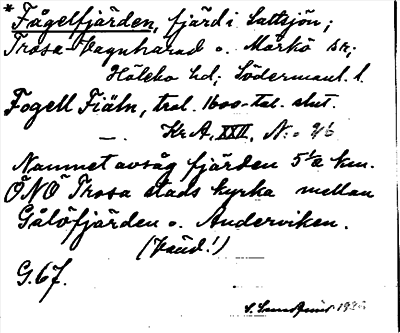 * Fågelfjärden, fjärd i Saltsjön;
Trosa-Vagnhärad o. Mörkö snr;
Hölebo hd; Södermanl. l.
Fogell Fiäln, trol. 1600-tal. slut.
— Kr A. XXII, N:o
Namnet avsåg fjärden 5½ km.
ÖNÖ Trosa stads kyrka mellan
Gälöfjärden o. Anderviken.
(Vänd!)
G. 67.